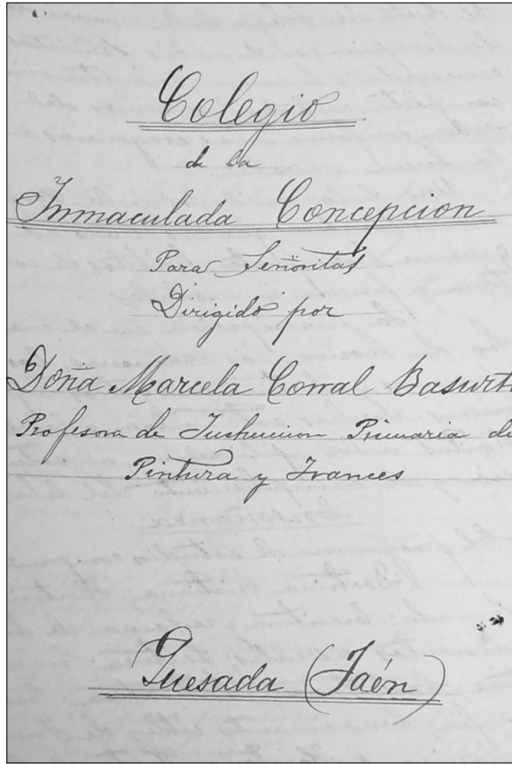 Colegio
de la
Inmaculada Concepcion
Para Señoritas
Dirigido por
Doña Marcela Corral Basurt
Profesora de Instruccion Primaria de
Pintura y Frances
Quesada (Jaén)